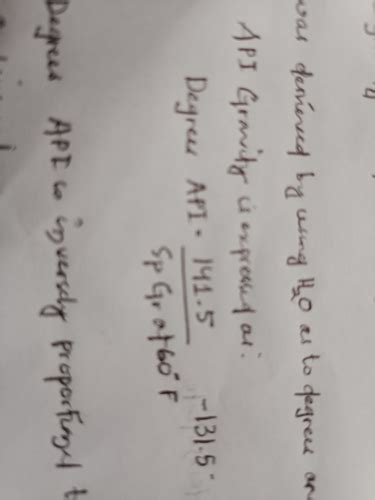 was derived by using H₂O as to degree
API Gravity is expressed as:
Degrees API = 141.5
Sp Gr at 60° F
-131.5
Degrees API is inversely proportional